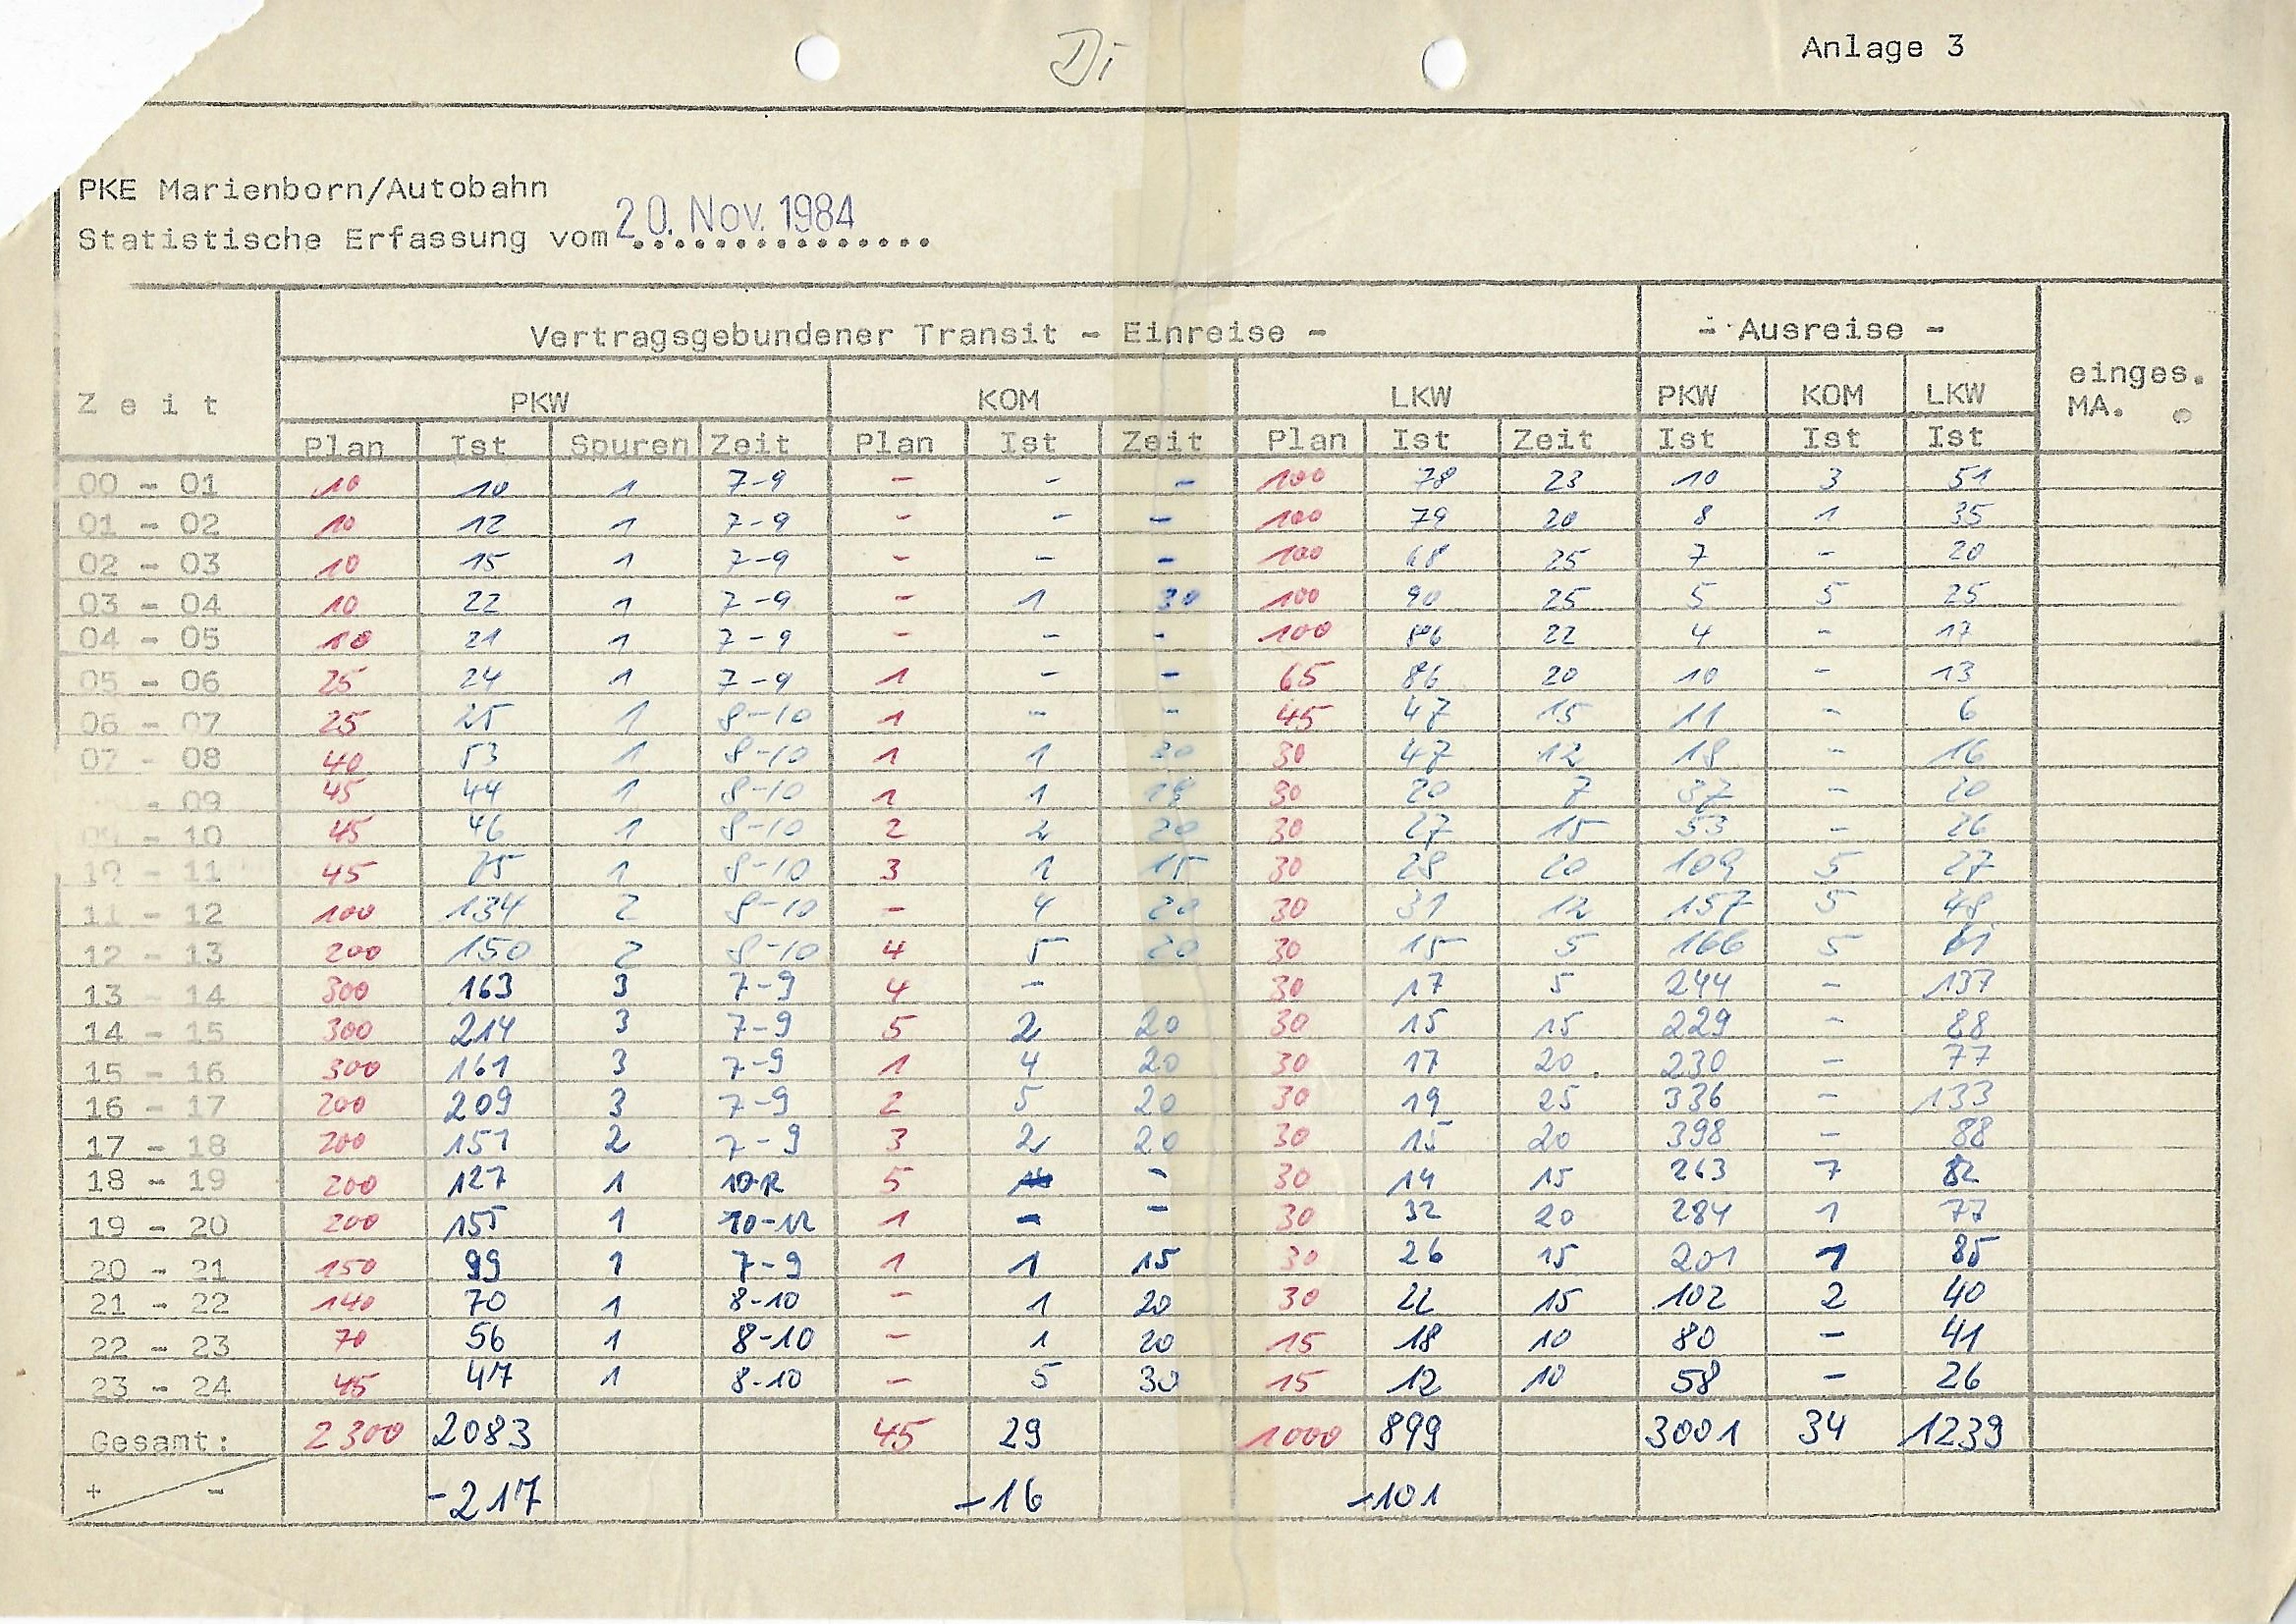 Di
Anlage 3
PKE Marienborn/Autobahn
Statistische Erfassung vom 20. Nov. 1984
Vertragsgebundener Transit - Einreise - - Ausreise -
Zeit PKW KOM LKW PKW KOM LKW einges. MA.
Plan Ist Spuren Zeit Plan Ist Zeit Plan Ist Zeit Ist Ist Ist
00 - 01 10 10 1 7-9 - - - 100 78 23 10 3 51
01 - 02 10 12 1 7-9 - - - 100 79 20 8 1 35
02 - 03 10 15 1 7-9 - - - 100 68 25 7 - 20
03 - 04 10 22 1 7-9 - 1 30 100 90 25 5 5 25
04 - 05 10 21 1 7-9 - - - 100 22 4 - 17
05 - 06 25 24 1 7-9 1 - - 65 86 20 10 - 13
06 - 07 25 25 1 8-10 1 - - 45 47 15 11 - 6
07 - 08 40 53 1 8-10 1 1 30 30 47 12 18 - 16
- 09 45 44 1 8-10 1 1 30 20 7 37 - 20
09 - 10 45 46 1 8-10 2 2 20 30 27 15 53 - 26
10 - 11 45 75 1 8-10 3 1 15 30 28 20 109 5 27
11 - 12 100 134 2 8-10 - 4 20 30 31 12 157 5 48
12 - 13 200 150 2 8-10 4 5 20 30 15 5 166 5 61
13 - 14 300 163 3 7-9 4 - 30 17 5 244 - 137
14 - 15 300 214 3 7-9 5 2 20 30 15 15 229 - 88
15 - 16 300 161 3 7-9 1 4 20 30 17 20 230 - 77
16 - 17 200 209 3 7-9 2 5 20 30 19 25 336 - 133
17 - 18 200 151 2 7-9 3 2 20 30 15 20 398 - 88
18 - 19 200 127 1 10-12 5 - 30 14 15 263 7 82
19 - 20 200 155 1 10-12 1 - - 30 32 20 284 1 77
20 - 21 150 99 1 7-9 1 1 15 30 26 15 201 1 85
21 - 22 140 70 1 8-10 - 1 20 30 22 15 102 2 40
22 - 23 70 56 1 8-10 - 1 20 15 18 10 80 - 41
23 - 24 45 47 1 8-10 - 5 30 15 12 10 58 - 26
Gesamt: 2300 2083 45 29 1000 899 3001 34 1239
+ - -217 -16 -101